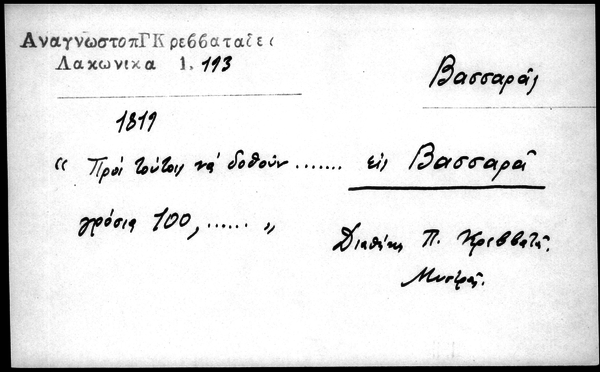 ΑναγνωστοπΓΚρεββαταδες
Λακωνικα 1, 193
Βασσαρᾶς
1819
“ Πρὸς τούτοις νά δοθοῦν ....... εἰς Βασσαρᾶ
γρόσια 100, ...... „
Διαθήκη Π. Κρεββατᾶ.
Μυστρᾶς.